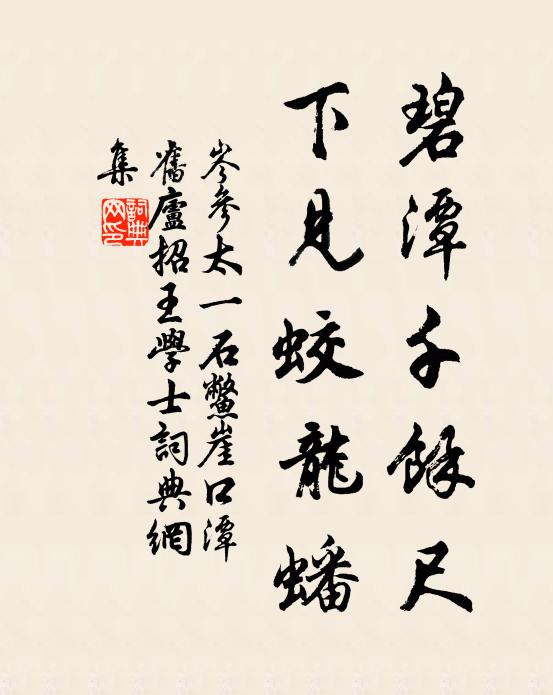 碧潭千餘尺
下見蛟龍蟠
岑參太一石鱉崖口潭
舊廬招王學士詞典網
集
詞典
网印